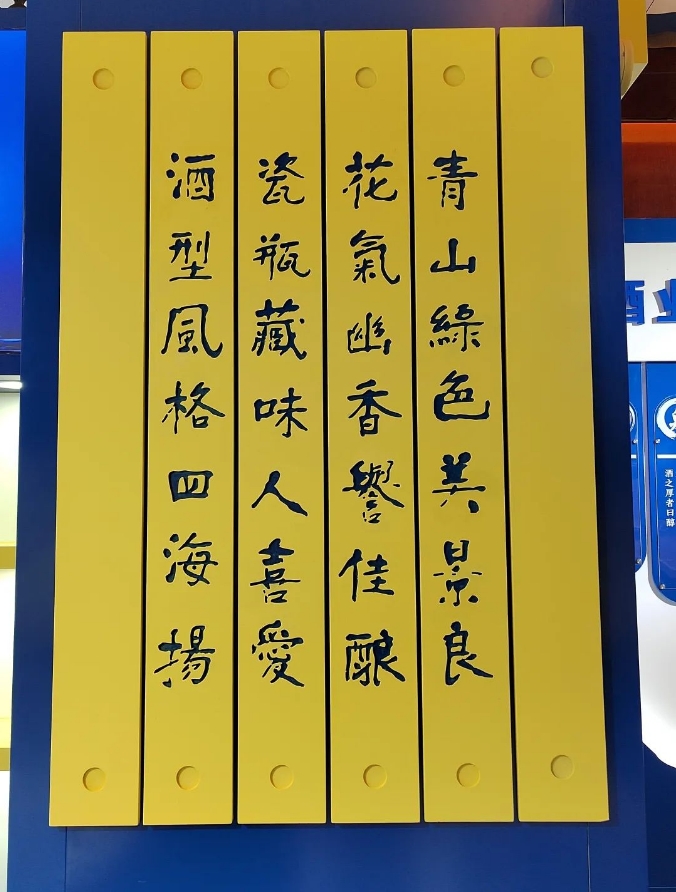 青山綠色美景良
花氣幽香譽佳釀
瓷瓶藏味人喜愛
酒型風格四海揚
酒业
酒之厚者曰醇